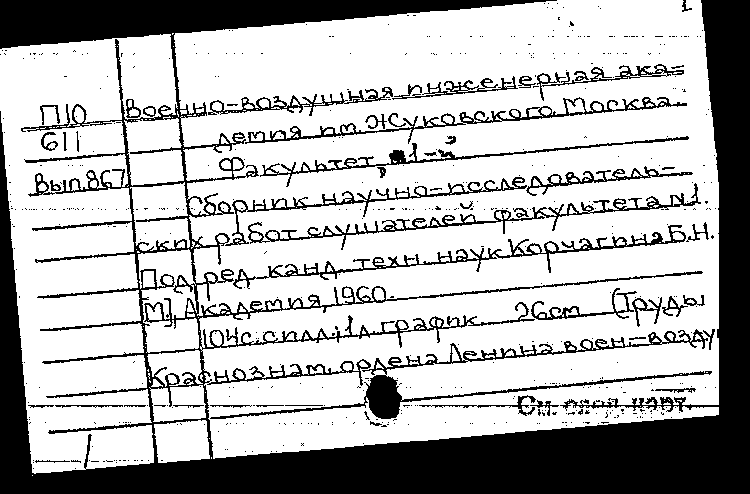 1
П10 Военно-воздушная инженерная ака-
611 демия им. Жуковского. Москва.
Вып.867 Факультет, 1-й
Сборник научно-исследователь-
ских работ слушателей факультета №1.
Под ред. канд. техн. наук Корчагина Б.Н.
[М], Академия, 1960.
104с. с илл.; 1л. график. 26см (Труды
Краснознам. ордена Ленина воен.-возду
См. след. карт.